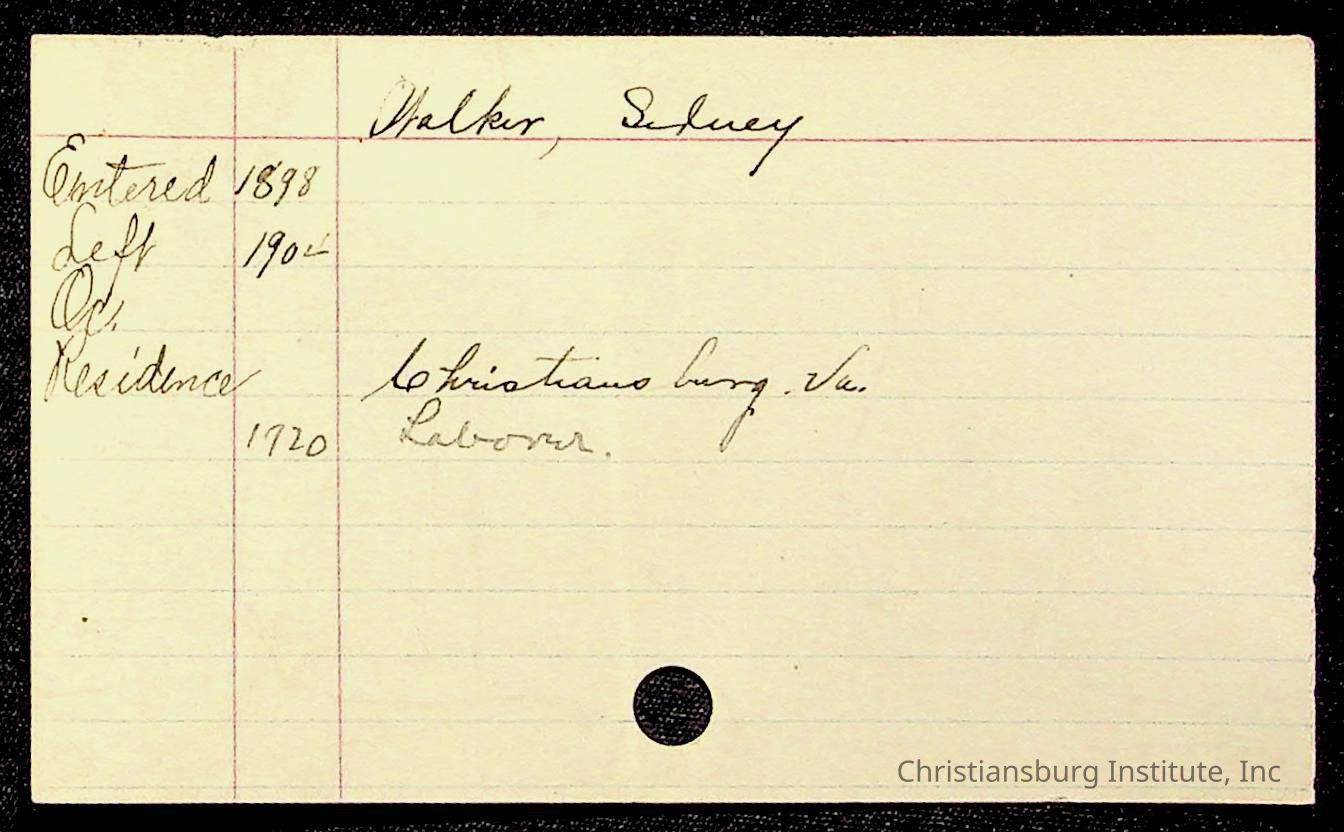 Walker, Sidney
Entered 1898
Left 190
Oc.
Residence Christiansburg. Va.
1920 Laborer.
Christiansburg Institute, Inc